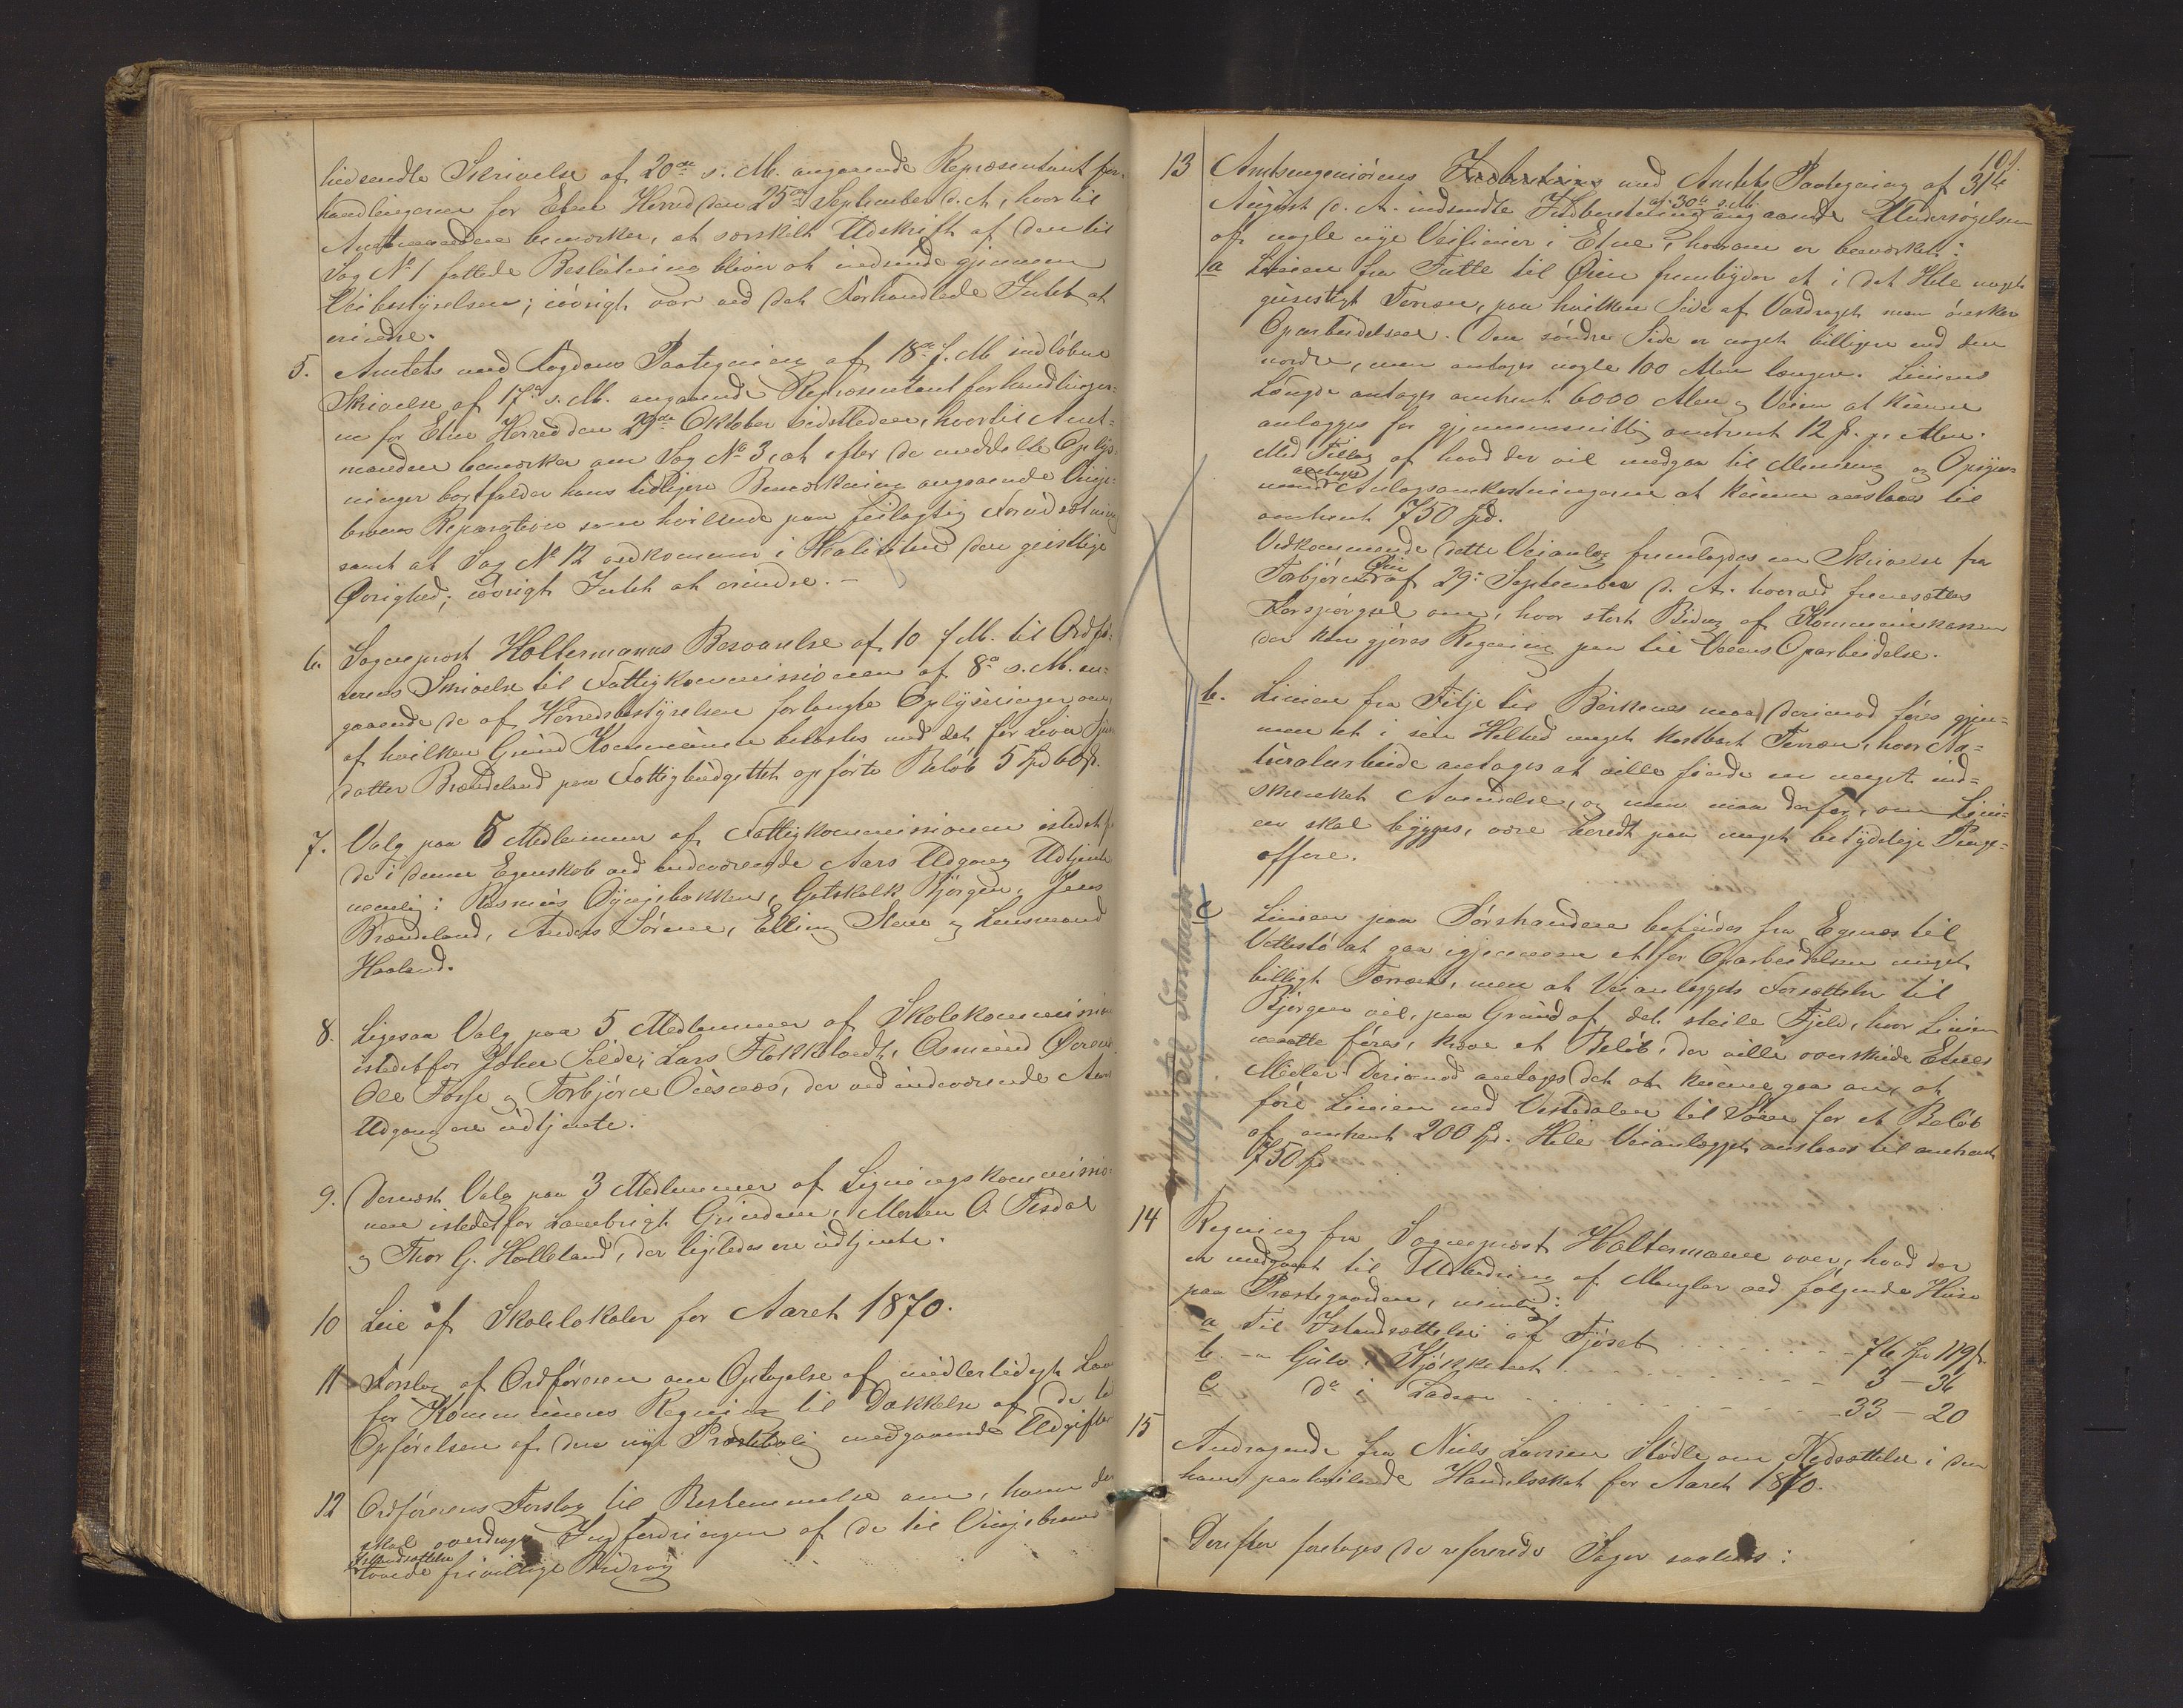 hidsendte Skrivelse af 20de s. M. angaaende Repræsentantfor-
handlingerne for Etne Herred den 25de September d. A., hvortil
Amtmanden bemærker, at særskilt Udskrift af den til
Sag No 1 fattede Beslutning bliver at indsende gjennem
Veibestyrelsen; iøvrigt var ved det Forhandlede Intet at
erindre.
5. Amtets med Fogdens Paategning af 18de f. M. indløbne
Skrivelse af 17de s. M. angaaende Repræsentantforhandlinger-
ne for Etne Herred den 29de Oktober sidstleden, hvortil Amt-
manden bemærker om Sag No 3, at efter de meddelte Oplys-
ninger bortfalder hans tidligere Bemærkning angaaende
broens Reparation som hvilende paa feilagtig Forudsætning
samt at Sag No 12 vedkommer i Realiteten den geistlige
Øvrighed; iøvrigt Intet at erindre. -
6. Sogneprest Holtermanns Besvarelse af 10 f. M. til Ordfø-
rerens Skrivelse til Fattigkommissionen af 8de s. M. an-
gaaende de af Herredsbestyrelsen forlangte Oplysninger om,
af hvilken Grund Kommunen belastes med det for
datter Brændeland paa Fattigbudgettet opførte Beløb 5 Spd 60 s.
7. Valg paa 5 Medlemmer af Fattigkommissionen istedetfor
de i denne Egenskab ved indeværende Aars Udgang Udtjente
nemlig: Rasmus Øyngsbakken, Gotskalk Bjørgen, Jens
Brændeland, Anders Sørene, Elling Steine og Lensmand
Haaland.
8. Ligesaa Valg paa 5 Medlemmer af Skolekommission
istedetfor John Silde, Lars Flokketvedt, Osmund
Ole Fosse og Torbjørn Osesnes, der ved indeværende Aars
Udgang ere udtjente.
9. Dernæst Valg paa 3 Medlemmer af Ligningskommissio-
nen istedetfor Lambrigt Grindem, Morten O. Tesdal
og Thor G. Halleland, der ligeledes ere udtjente.
10 Leie af Skolelokaler for Aaret 1870.
11 Forslag af Ordføreren om Optagelse af midlertidigt Laan
for Kommunens Regning til Dækkelse af de til
Opførelsen af den nye Præstebolig medgaaende Udgifter
12 Ordførerens Forslag til Bestemmelse om, hvem der
skal overdrages Inddrivningen af de til
Istandsættelse
lovede frivillige Bidrag
101.
13 Amtsingeniørens med Amtets Paategning af 31te
af 30te s. M.
August d. A. indsendte Indberetning angaaende Undersøgelsen
af nogle nye Veilinier i Etne, hvorom er bemærket:
a Linien fra Tutle til Øien frembyder et i det Hele meget
gunstigt Terræn, paa hvilken Side af Vasdraget man ønsker
Oparbeidelsen. Den søndre Side er noget billigere end den
nordre, men antages nogle 100 Alen længere. Liniens
Længde antages omtrent 6000 Alen og Veien at kunne
anlægges for gjennemsnittlig omtrent 12 s. pr. Alen.
Med Tillæg af hvad der vil medgaa til Minering og Opsyn
antages
Anlægsomkostningerne at kunne anslaaes til
omtrent 750 Spd.
Vedkommende dette Veianlæg fremlagdes en Skrivelse fra
Øien
Torbjørn af 29de September d. A. hvorved fremsættes
Forspørgsel om, hvor stort Bidrag af Kommunekassen
der kan gjøres Regning paa til Veiens Oparbeidelse.
b. Linien fra Filje til Birkenes maa derimod føres gjen-
nem et i sin Helhed meget kostbart Terræn, hvor Na-
turalarbeide antages at ville finde en meget ind-
skrænket Anvendelse, og man maa derfor, om Lini-
en skal bygges, være beredt paa meget betydelige Penge-
offere.
c Linien paa Sørstranden befindes fra Egenes til
Vettestø at gaa igjennem et for Oparbeidelsen meget
billigt Terræn, men at Veianlæggets Forsættelse til
Bjørgen vil, paa Grund af det steile Fjeld, hvor Linien
maatte føres, kræve et Beløb, der ville overskride Etnes
Midler. Derimod antages det at kunne gaa an, at
føre Linien ned Vestedalen til Søen for et Beløb
af omtrent 200 Spd. Hele Veianlægget anslaaes til omtrent
750 Spd
Veg Sørstranden
14 Regning fra Sogneprest Holtermann over, hvad der
er medgaaet til Udbedring af Mangler ved følgende Huse
paa Præstegaarden, nemlig:
a Til Istandsættelse af Fjøset . . . . . . . 76 Spd 119 s.
b. - " Gulv i Kjøkkenet . . . . . . . . . . 3 - 36
c do i Laden . . . . . . . . . . . . 33 - 20
15 Andragende fra Niels Larsen Stødle om Nedsættelse i den
ham paahvilende Handelsskat for Aaret 1870.
Derefter foretages de refererede Sager saaledes: